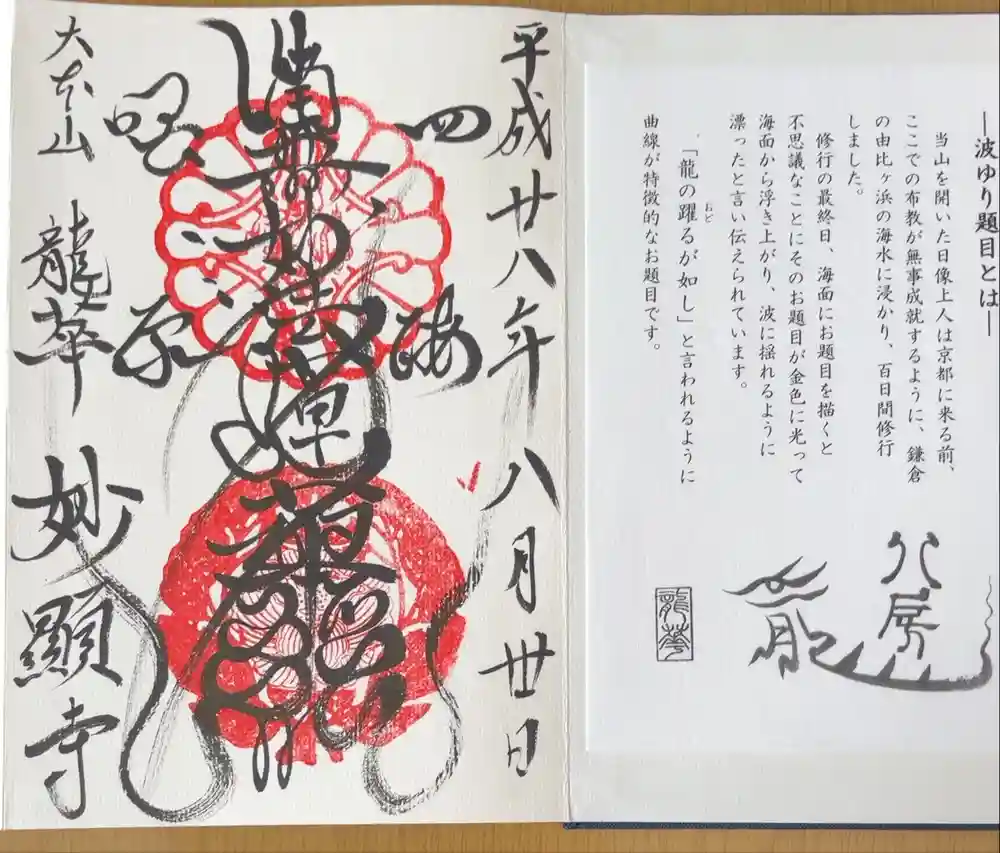 ―波ゆり題目とは―
当山を開いた日像上人は京都に来る前、
ここでの布教が無事成就するように、鎌倉
の由比ヶ浜の海水に浸かり、百日間修行
しました。
修行の最終日、海面にお題目を描くと
不思議なことにそのお題目が金色に光って
海面から浮き上がり、波に揺れるように
漂ったと言い伝えられています。
「龍の躍るが如し」と言われるように
おど
曲線が特徴的なお題目です。
龍華
平成廿八年八月丗日
四海
南無妙法蓮華経
大本山 龍華 妙顯寺